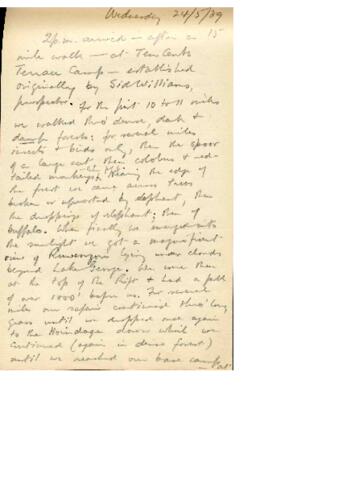 Wednesday 24/5/39
2 p.m. arrived – after a 15
mile walk – at Ten Cents
Terrace Camp – established
originally by Sid Williams,
prospector. For the first 10 to 11 miles
we walked thro' dense, dark &
damp forests: for several miles
insects & birds only, then the spoor
of a large cat, then colobus & red-
tailed monkeys. Nearing the edge of
the forest we came across trees
broken or uprooted by elephant, then
the droppings of elephant; then of
buffalo. When finally we emerged into
the sunlight we got a magnificent
view of Ruwenzori lying under clouds
beyond Lake George. We were then
at the top of the Rift & had a fall
of over 1000' before us. For several
miles our safari continued thro' long
grass until we dropped once again
to the down which we
continued (again in dense forest)
until we reached our base camp at